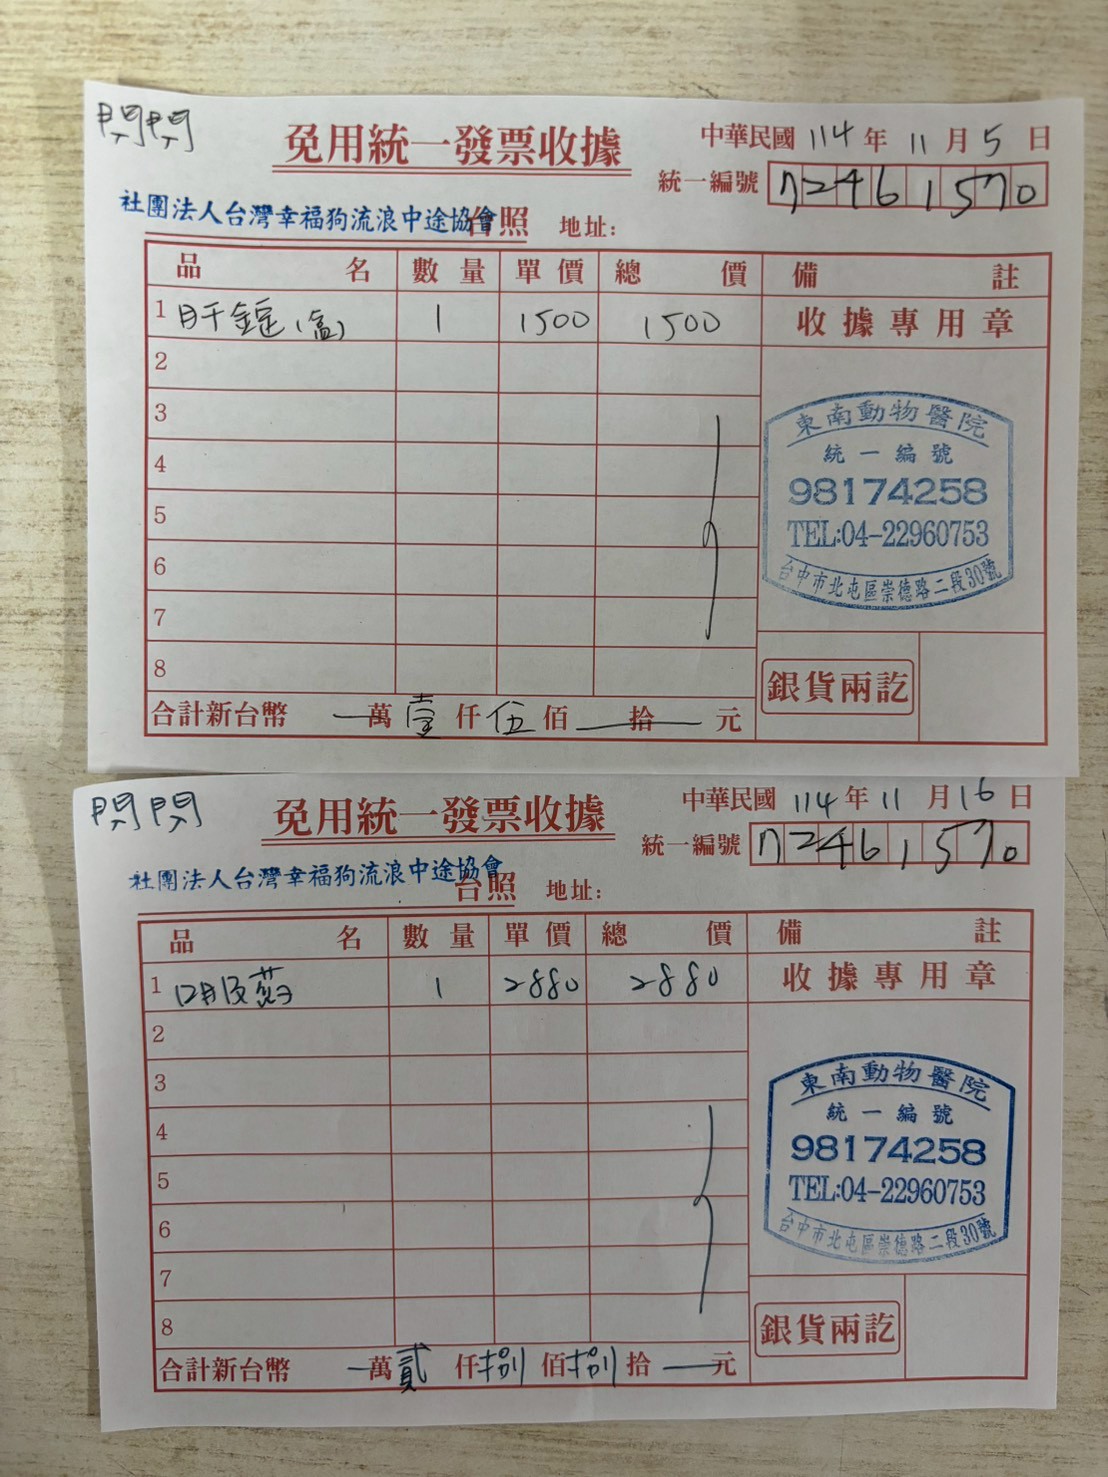 閃閃
免用統一發票收據
中華民國 114 年 11 月 5 日
統一編號 72461570
社團法人台灣幸福狗流浪中途協會 台照 地址:
品名 數量 單價 總價 備註
1 肝錠(盒) 1 1500 1500 收據專用章
2
3
4
5
6
7
8
東南動物醫院
統一編號
98174258
TEL:04-22960753
台中市北屯區崇德路二段30號
銀貨兩訖
合計新台幣 一萬壹仟伍佰一拾一元
閃閃
免用統一發票收據
中華民國 114 年 11 月 16 日
統一編號 72461570
社團法人台灣幸福狗流浪中途協會 台照 地址:
品名 數量 單價 總價 備註
1 1 2880 2880 收據專用章
2
3
4
5
6
7
8
東南動物醫院
統一編號
98174258
TEL:04-22960753
台中市北屯區崇德路二段30號
銀貨兩訖
合計新台幣 一萬貳仟捌佰捌拾一元